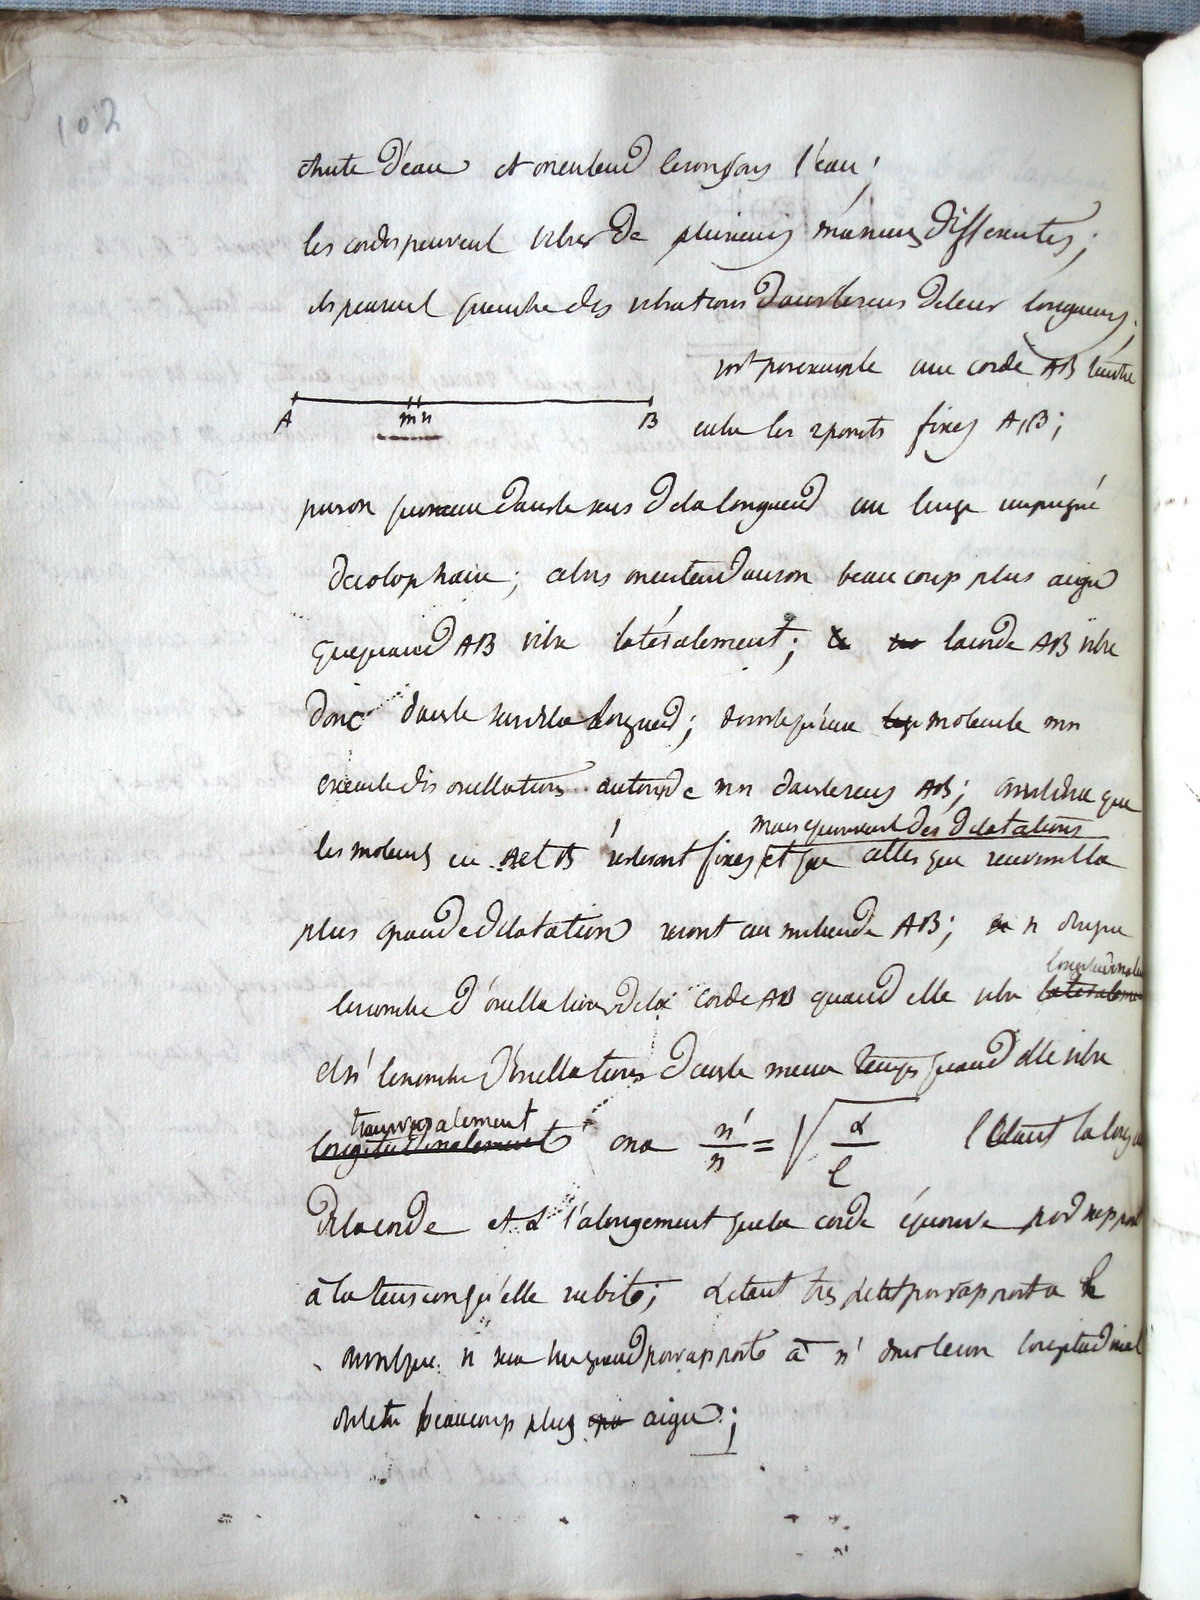 102
chute d'eau et on entend le son sous l'eau;
les cordes peuvent vibrer de plusieurs manieres differentes;
ils peuvent prendre des vibrations dans le sens de leur longueurs;
soit par exemple une corde AB tendue
A mn B
entre les 2 points fixes A, B;
puis on promene dans le sens de la longueur un linge impregné
de colophane; alors on entend un son beaucoup plus aigu
que quand AB vibre latéralement; la corde AB vibre
donc dans le sens de la longueur; de sorte qu'une molecule mn
execute des oscillations autour de mn dans le sens AB; on voit que
mais eprouvent des dilatations
les molecules en A et B resteront fixes et que celles qui recevront la
plus grande dilatation seront au milieu de AB; n
longitudinalement
le nombre d'oscillations de la corde AB quand elle vibre latéralement
et n' le nombre d'oscillations dans le meme temps quand elle vibre
transversalement
longitudinalement on a n'/n = √α/l l étant la longueur
de la corde et α l'alongement que la corde éprouve par rapport
à la tension qu'elle subit; α étant très petit par rapport a l
n sera tres grand par rapport à n' donc le son longitudinal
doit etre beaucoup plus aigu;